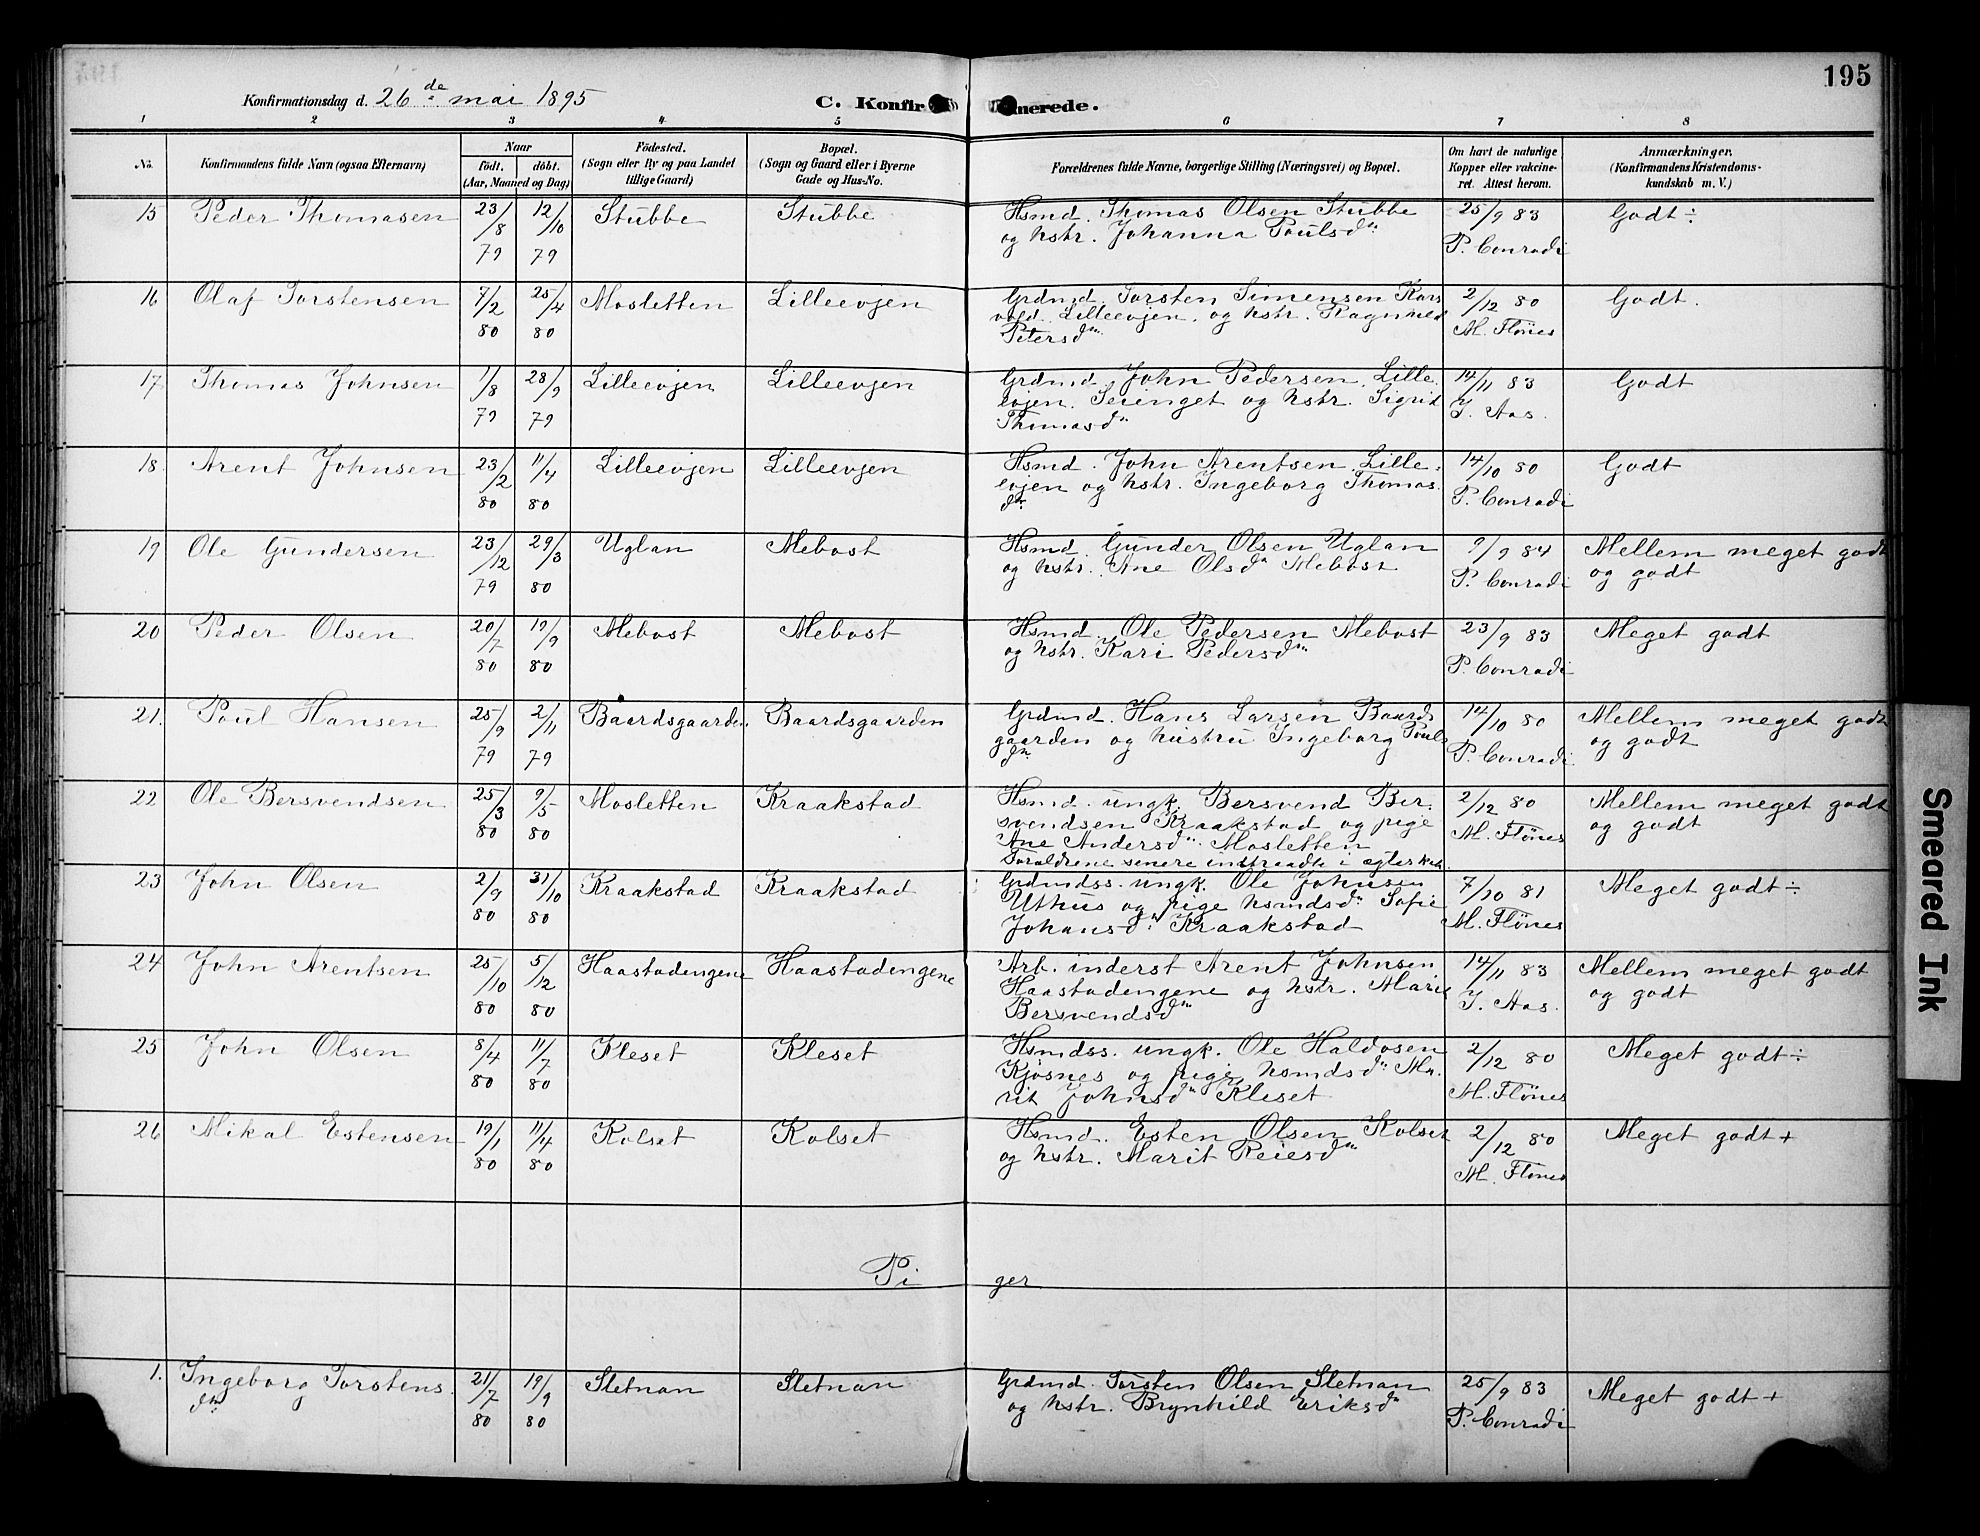 195
Konfirmationsdag d. 26de mai 1895
C. Konfir merede.
1 2 3 4 5 6 7 8
No. Konfirmandens fulde Navn (ogsaa Efternavn) Naar födt. döbt. (Aar, Maaned og Dag) Födested. (Sogn eller By og paa Landet tillige Gaard) Bopæl. (Sogn og Gaard eller i Byerne Gade og Hus-No. Forældrenes fulde Navne, borgerlige Stilling (Næringsvei) og Bopæl. Om havt de naturlige Kopper eller vakcineret. Attest herom. Anmærkninger. (Konfirmandens Kristendomskundskab m. V.)
15 Peder Thomasen 23/8 79 12/10 79 Stubbe Stubbe Hsmd. Thomas Olsen Stubbe
og hstr. Johanna Poulsdn. 25/9 83 P. Conradi Godt ÷
16 Olaf Torstensen 7/2 80 25/4 80 Mosletten Lilleevjen Grdmd. Torsten Simensen Kors
vold. Lilleevjen. og hstr. Ragnhild
Petersdn 2/12 80 M. Flönes Godt.
17. Thomas Johnsen 1/8 79 28/9 79 Lilleevjen Lilleevjen Grdmd. John Pedersen. Lille.
evjen. og hstr. Sigrid
Thomasdn 14/11 83 J. Aas. Godt
18. Arent Johnsen 23/2 80 11/4 80 Lilleevjen Lilleevjen Hsmd. John Arentsen. Lille.
evjen og hstr. Ingeborg Thomas.
dn. 14/10 80 P. Conradi Godt
19 Ole Gundersen 23/12 79 29/3 80 Uglan Mebost Hsmd. Gunder Olsen Uglan
og hstr. Ane Olsdn Mebost 9/9 84 P. Conradi Mellem meget godt
og godt
20 Peder Olsen 20/7 80 19/9 80 Mebost Mebost Hsmd. Ole Pedersen Mebost
og hstr. Kari Pedersdn 23/9 83 P. Conradi Meget godt
21. Poul Hansen 25/9 79 2/11 79 Baardsgaarden Baardsgaarden Grdmd. Hans Larsen Baards
gaarden og hustru Ingeborg Pouls
dn 14/10 80 P. Conradi Mellem meget godt
og godt
22 Ole Bersvendsen 25/3 80 9/5 80 Mosletten Kraakstad Hsmd. ungk. Bersvend Ber.
svendsen Kraakstad og pige
Ane Andersdn. Mosletten
Forældrene senere indtraadte i ægtesk. 2/12 80 M. Flönes Mellem meget godt
og godt
23 John Olsen 2/9 80 31/10 80 Kraakstad Kraakstad Grdmdss. ungk. Ole Johnsen
Uthus og pige hsmdsdn Sofie
Johansdn. Kraakstad 7/10 81 M. Flönes Meget godt ÷
24 John Arentsen 25/10 80 5/12 80 Haastadengene Haastadengene Arb. inderst Arent Johnsen
Haastadengene og hstr. Marit
Bersvendsdn 14/11 83 J. Aas. Mellem meget godt
og godt
25 John Olsen 8/4 80 11/7 80 Kleset Kleset Hsmdss. ungk. Ole Haldosen
Kjösnes og pige hsmdsdn Ma.
rit Johnsdn Kleset 2/12 80 M. Flönes Meget godt ÷
26 Mikal Estensen 19/1 80 11/4 80 Kolset Kolset Hsmd. Esten Olsen Kolset
og hstr. Marit Reiersdn 2/12 80 M. Flönes Meget godt +
Pi ger
1. Ingeborg Torstens.
dn. 21/7 80 19/9 80 Sletnan Sletnan Grdmd. Torsten Olsen Sletnan
og hstr. Brynhild Eriksdn 25/9 83 P. Conradi Meget godt +
Smeared Ink